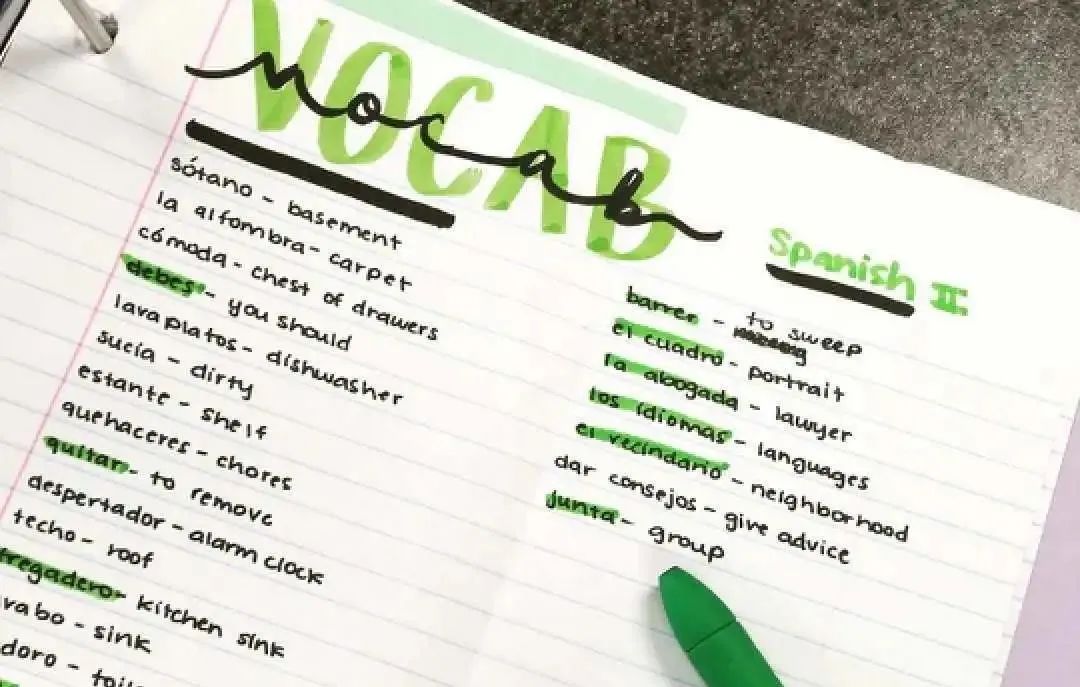 VOCAB
vocab
Spanish II:
sótano - basement
la alfombra - carpet
cómoda - chest of drawers
debes - you should
lavaplatos - dishwasher
sucia - dirty
estante - shelf
quehaceres - chores
quitar - to remove
despertador - alarm clock
techo - roof
fregadero - kitchen sink
vabo - sink
doro -
barrer - to sweep
el cuadro - portrait
la abogada - lawyer
los idiomas - languages
el vecindario - neighborhood
dar consejos - give advice
junta - group